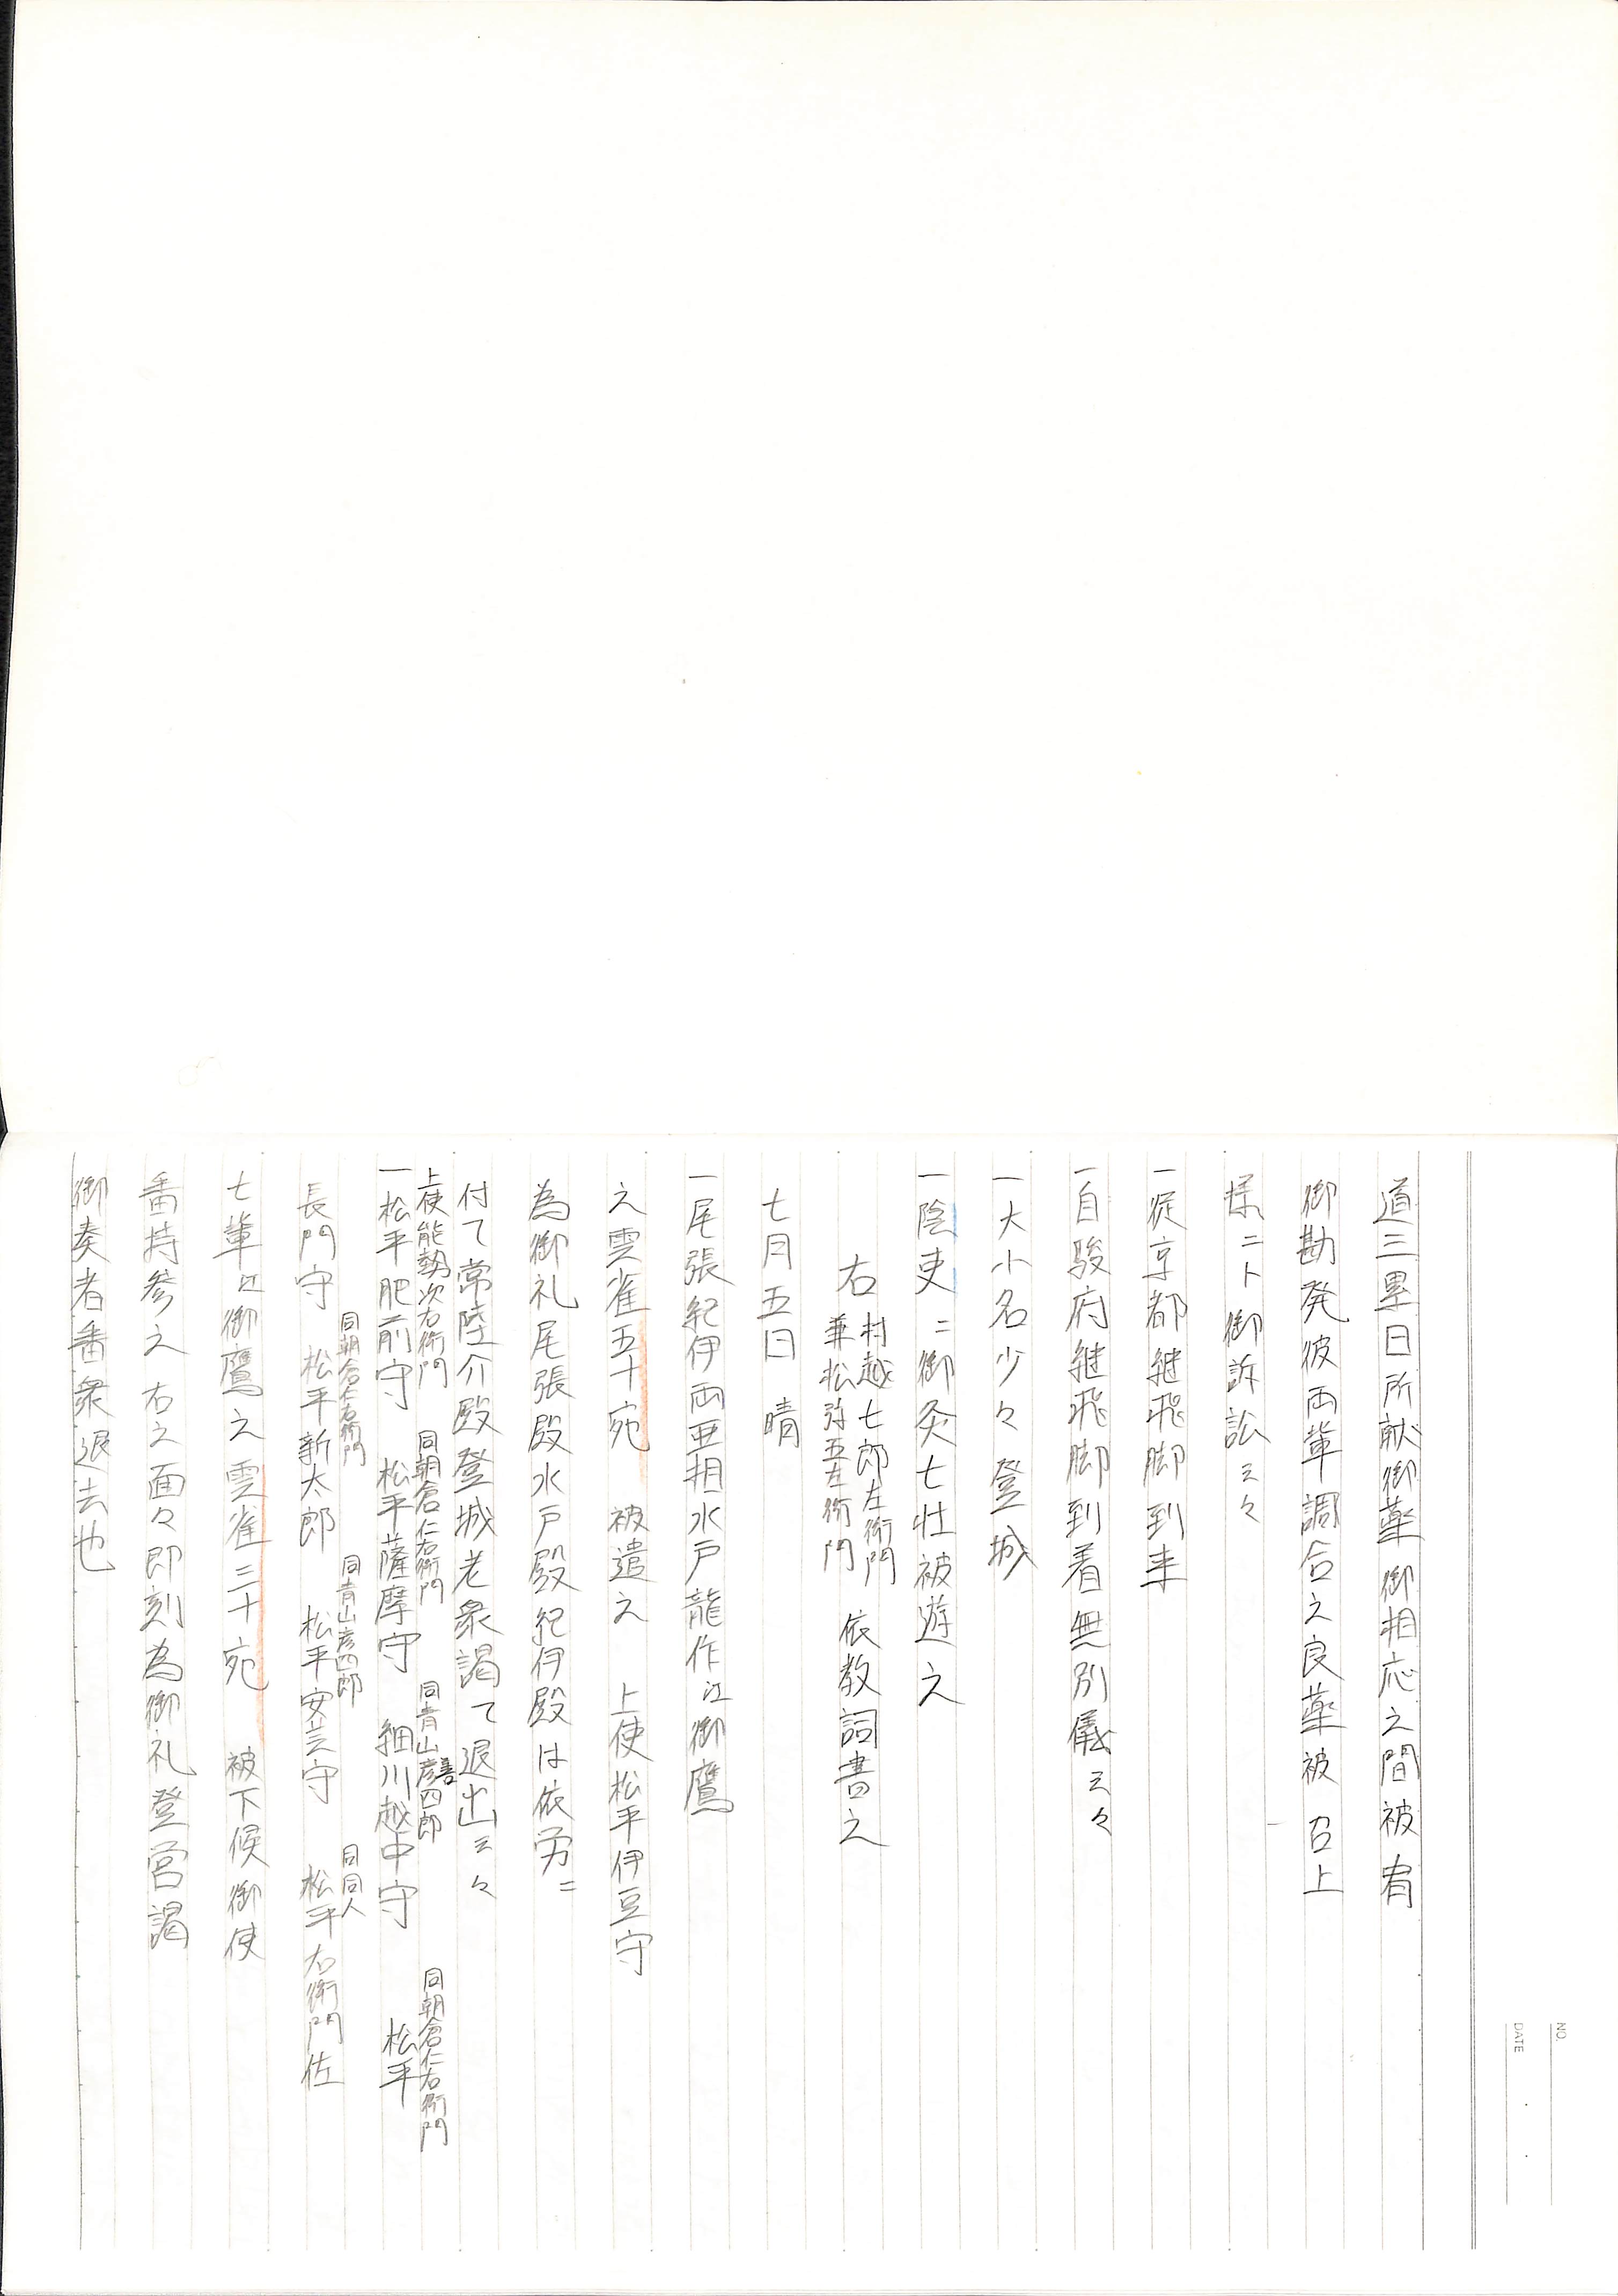 NO.
DATE
道三累日所献御薬御相応之間被宥
御勘発彼両輩調合之良薬被召上
様ニト御訴訟云々
一従京都継飛脚到来
一自駿府継飛脚到着無別儀云々
一大小名少々登城
一陰吏ニ御灸七壮被遊之
右 村越七郎左衛門 兼松弥五左衛門 依教詞書之
七月五日 晴
一尾張紀伊両亜相水戸龍作江御鷹
之雲雀五十宛 被遣之 上使松平伊豆守
為御礼尾張殿水戸殿紀伊殿は依労ニ
付て常陸介殿登城老衆謁て退出云々
上使能勢次右衛門 同朝倉仁右衛門 同青山善四郎 同朝倉仁右衛門
一松平肥前守 松平薩摩守 細川越中守 松平
同朝倉仁右衛門 同青山彦四郎 同同人
長門守 松平新太郎 松平安芸守 松平右衛門佐
七輩江御鷹之雲雀三十宛 被下候御使
番持参之右之面々即刻為御礼登営謁
御奏者番衆退去也